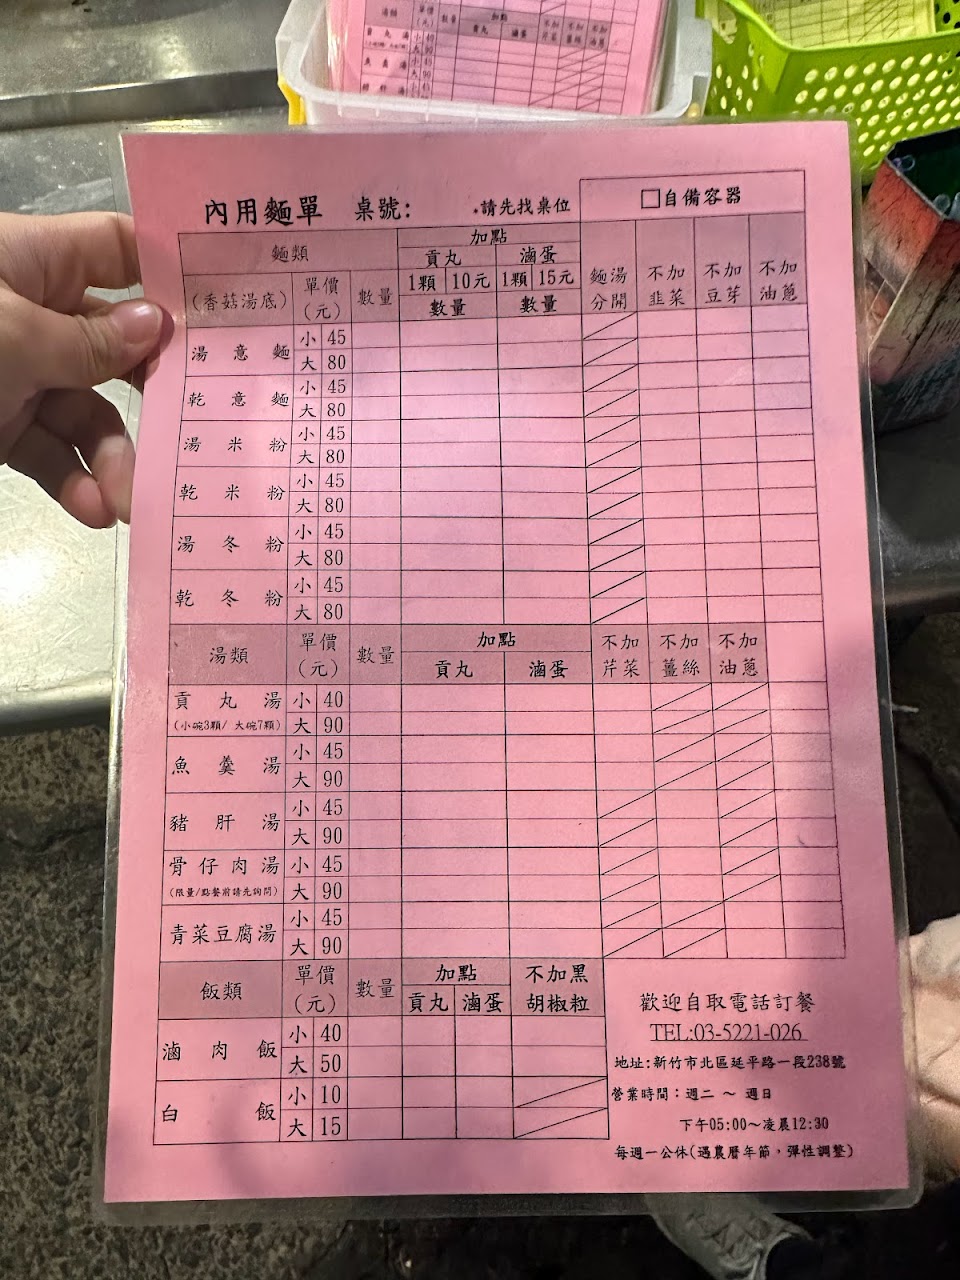 湯類 單價(元) 數量 加點 不加芹菜 不加薑絲 不加油蔥
貢丸 滷蛋
貢丸湯
魚羹湯
內用麵單 桌號: *請先找桌位 □自備容器
麵類 加點
貢丸 滷蛋
(香菇湯底) 單價(元) 數量 1顆 10元 1顆 15元 麵湯分開 不加韭菜 不加豆芽 不加油蔥
數量 數量
湯意麵 小 45
大 80
乾意麵 小 45
大 80
湯米粉 小 45
大 80
乾米粉 小 45
大 80
湯冬粉 小 45
大 80
乾冬粉 小 45
大 80
湯類 單價(元) 數量 加點 不加芹菜 不加薑絲 不加油蔥
貢丸 滷蛋
貢丸湯 小 40
(小碗3顆/大碗7顆) 大 90
魚羹湯 小 45
大 90
豬肝湯 小 45
大 90
骨仔肉湯 小 45
(限量/點餐前請先詢問) 大 90
青菜豆腐湯 小 45
大 90
飯類 單價(元) 數量 加點 不加黑胡椒粒
貢丸 滷蛋
滷肉飯 小 40
大 50
白飯 小 10
大 15
歡迎自取電話訂餐
TEL:03-5221-026
地址:新竹市北區延平路一段238號
營業時間：週二 ～ 週日
下午05:00～凌晨12:30
每週一公休(遇農曆年節，彈性調整)